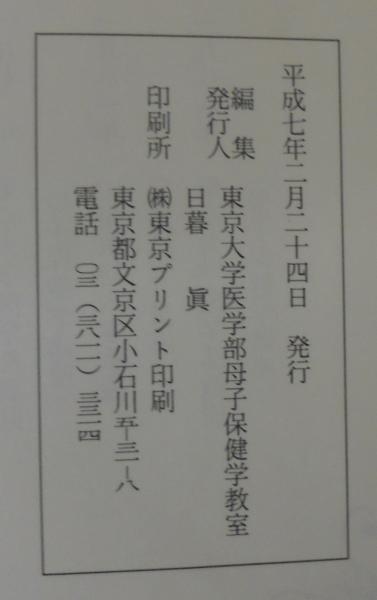 平成七年二月二十四日 発行
編集 東京大学医学部母子保健学教室
発行人 日暮 眞
印刷所 ㈱東京プリント印刷
東京都文京区小石川五−三一−八
電話 〇三(三八一一)三三一四